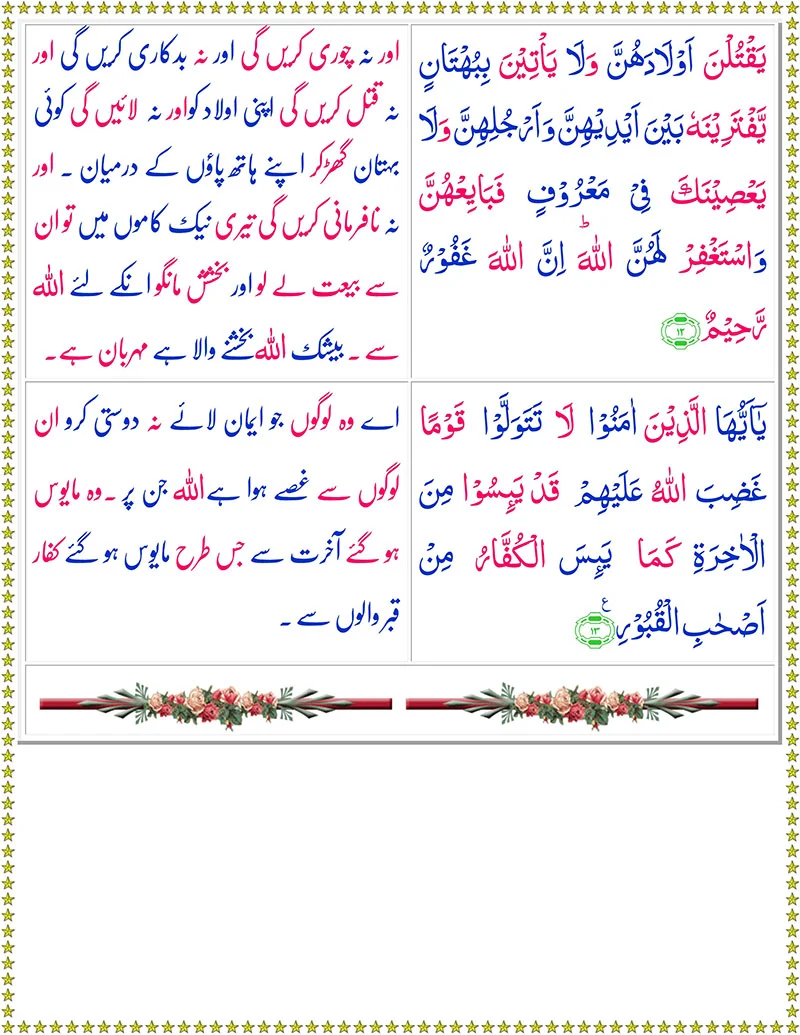 يَقْتُلْنَ اَوْلَادَهُنَّ وَلَا يَاْتِيْنَ بِبُهْتَانٍ
يَّفْتَرِيْنَهٗ بَيْنَ اَيْدِيْهِنَّ وَاَرْجُلِهِنَّ وَلَا
يَعْصِيْنَكَ فِىْ مَعْرُوْفٍ فَبَايِعْهُنَّ
وَاسْتَغْفِرْ لَهُنَّ اللّٰهَ ؕ اِنَّ اللّٰهَ غَفُوْرٌ
رَّحِيْمٌ ۱۲
اور نہ چوری کریں گی اور نہ بدکاری کریں گی اور
نہ قتل کریں گی اپنی اولاد کو اور نہ لائیں گی کوئی
بہتان گھڑکر اپنے ہاتھ پاؤں کے درمیان ۔ اور
نہ نافرمانی کریں گی تیری نیک کاموں میں تو ان
سے بیعت لے لو اور بخشش مانگو انکے لئے اللہ
سے ۔ بیشک اللہ بخشنے والا ہے مہربان ہے۔
يٰۤاَيُّهَا الَّذِيْنَ اٰمَنُوْا لَا تَتَوَلَّوْا قَوْمًا
غَضِبَ اللّٰهُ عَلَيْهِمْ قَدْ يَٮِٕسُوْا مِنَ
الْاٰخِرَةِ كَمَا يَٮِٕسَ الْكُفَّارُ مِنْ
اَصْحٰبِ الْقُبُوْرِ ع ۱۳
اے وہ لوگوں جو ایمان لائے نہ دوستی کرو ان
لوگوں سے غصے ہوا ہے اللہ جن پر ۔وہ مایوس
ہو گئے آخرت سے جس طرح مایوس ہو گئے کفار
قبر والوں سے ۔